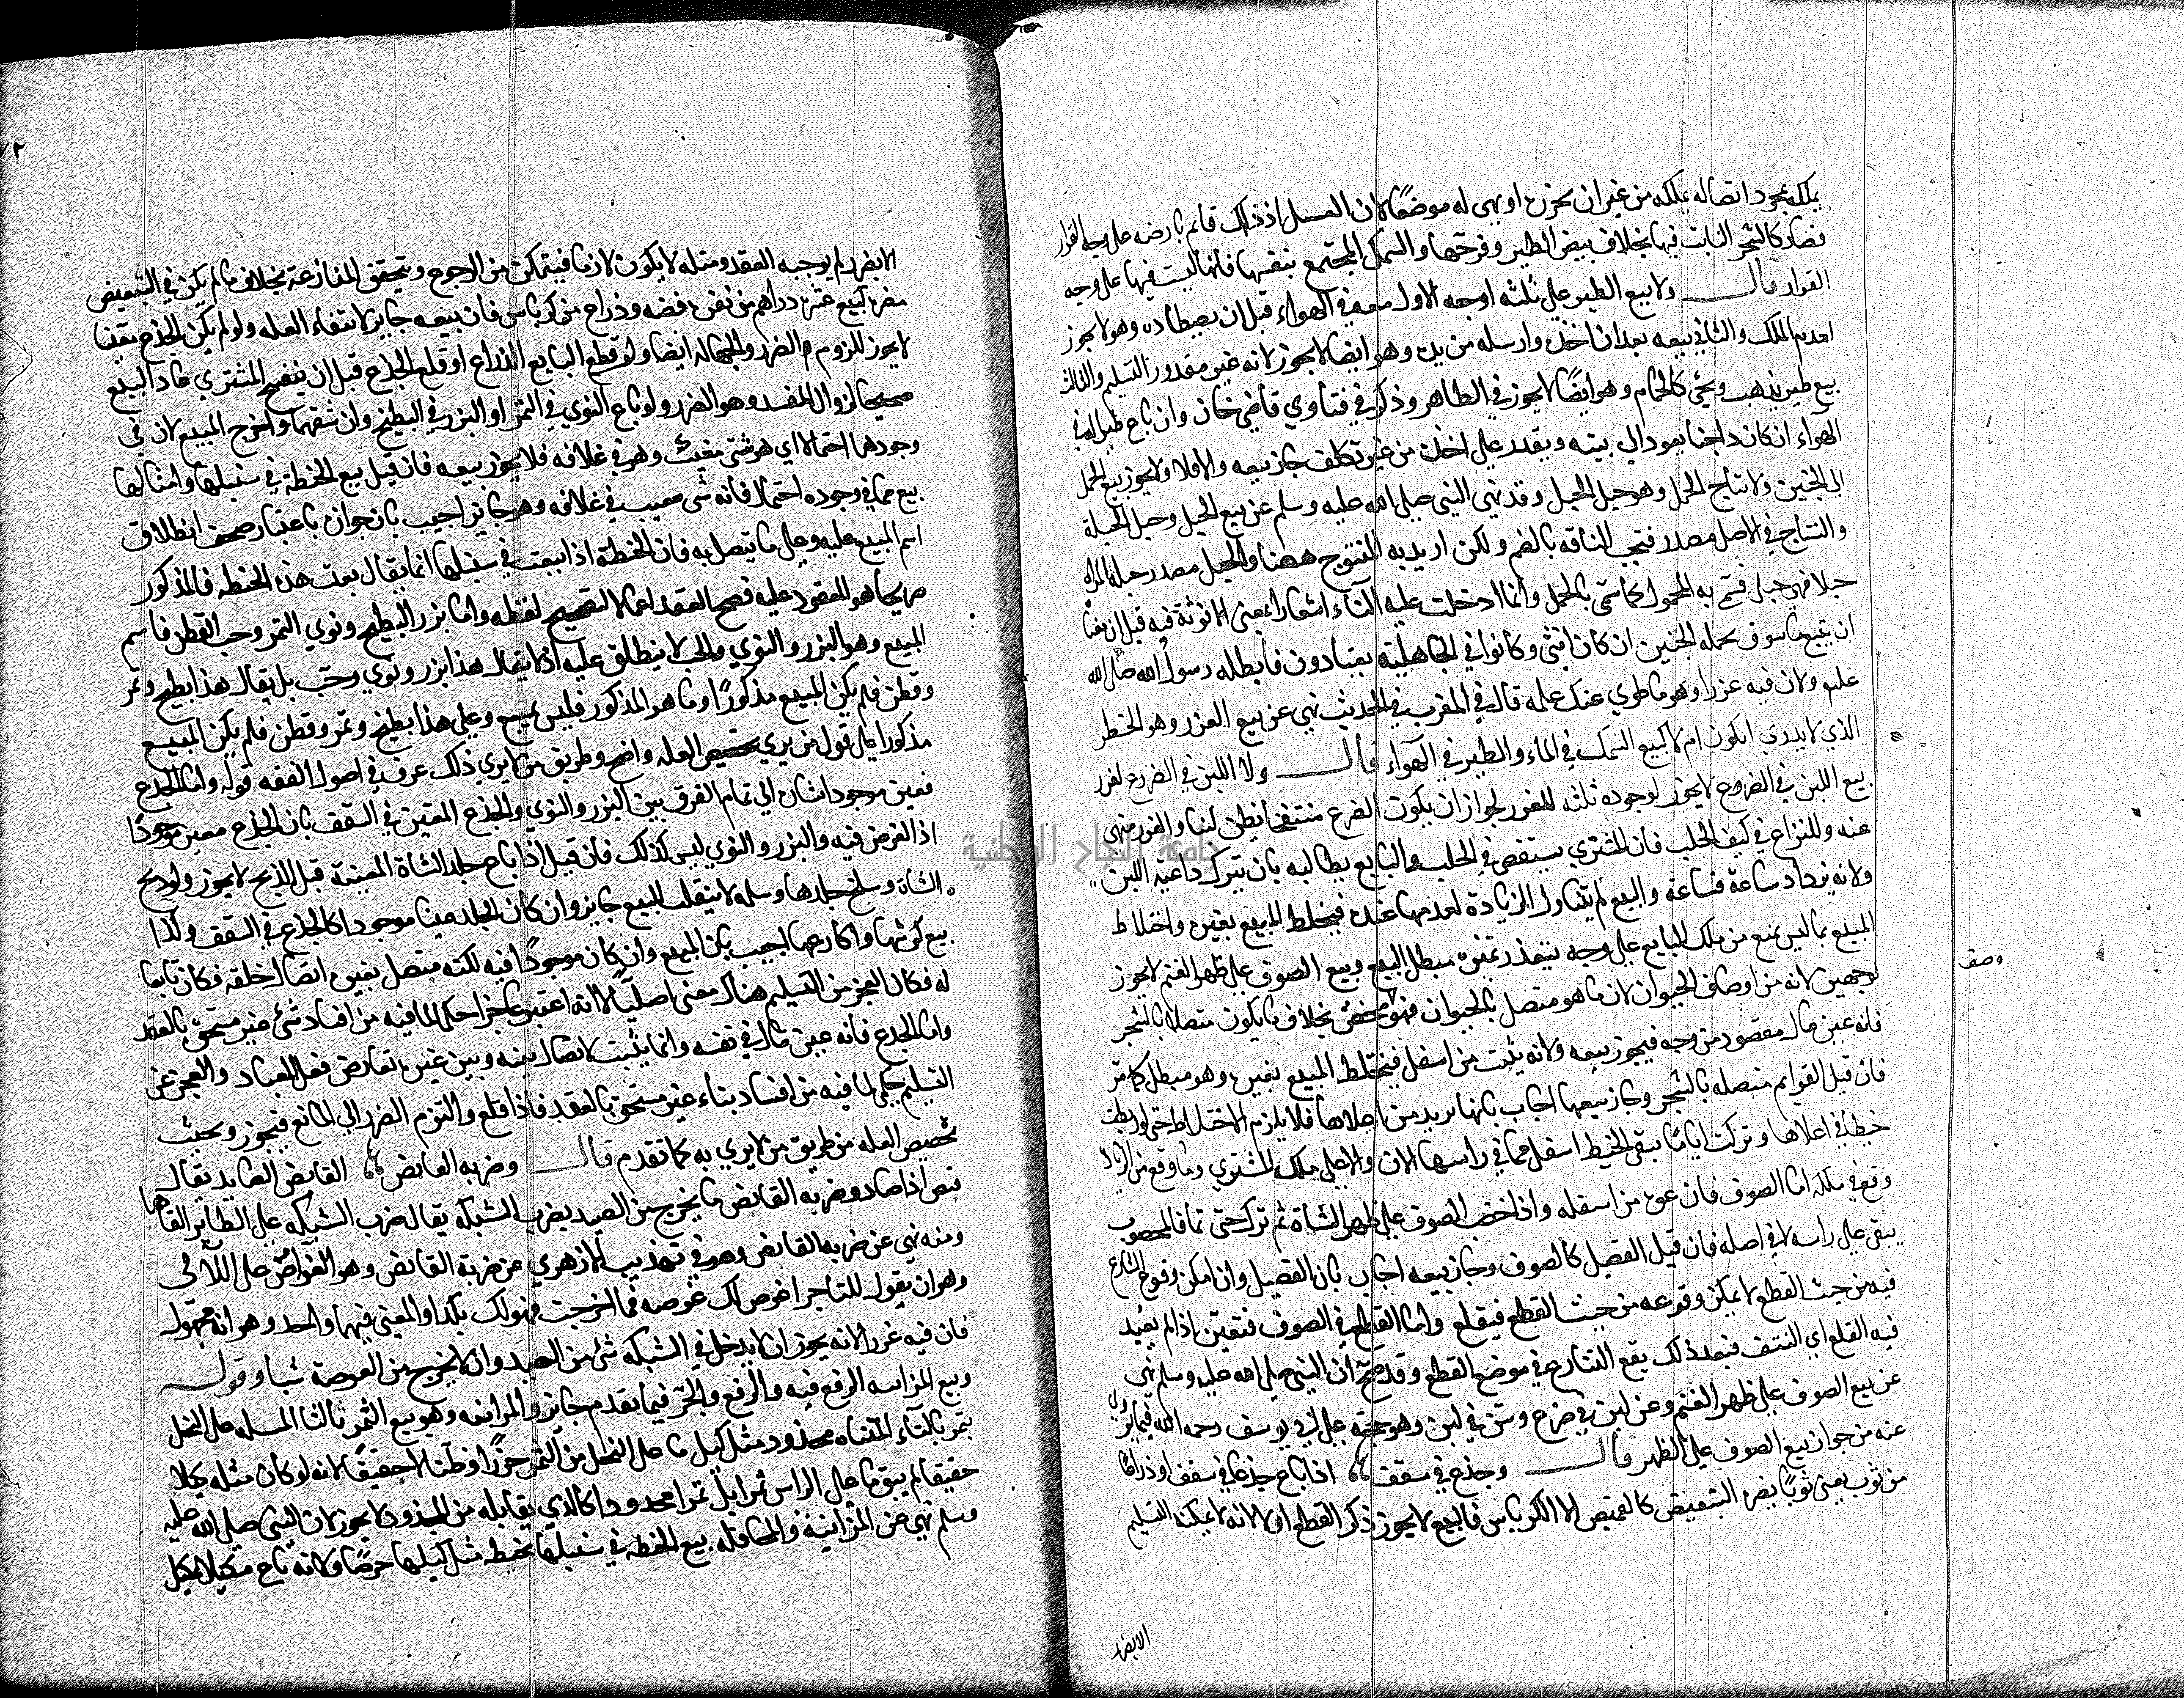 يملكه بمجرد اتصاله بملكه من غير ان يحرزه او يهيى له موضعًا لان العسل اذ ذاك قايم بارضه على وجه القرار
فصار كالشجر النابت فيها بخلاف بيض الطير وفرخها والسمك المجتمع بنفسها فانها ليست فيها على وجه
القرار قال ولا بيع الطير على ثلثه اوجه الاول بيعه في الهواء قبل ان يصطاده وهو لا يجوز
لعدم الملك والثاني بيعه بعد ان اخذه وارسله من يده وهو ايضا لا يجوز لانه غير مقدور التسليم والثالث
بيع طير يذهب ويجئ كالحمام وهو ايضًا لا يجوز في الظاهر وذكر في فتاوي قاضي خان وان باع طيرا له في
الهواء ان كان داجنا يعود الى بيته ويقدر على اخذه من غير تكلف جاز بيعه والا فلا ولا يجوز بيع الحمل
اي الجنين ولا نتاج الحمل وهو حبل الحبل وقد نهى النبي صلى الله عليه وسلم عن بيع الحبل وحبل الحبلة
والنتاج في الاصل مصدر نتجت الناقه بالضم ولكن اريد به المنتوج ههنا والحبل مصدر حبلت المراة
حبلا فهي حبلى فسمي به المحمول كما سمى بالحمل وانما ادخلت عليه التاء اشعارا بمعنى الانوثة فيه قيل ان معناه
ان يبيع ما سوف يحمله الجنين ان كان انثى وكانوا في الجاهلية يعتادون فابطله رسول الله صلى الله
عليه ولان فيه غررا وهو ما طوي عنك علمه قال في المغرب في الحديث نهي عن بيع الغرر وهو الخطر
الذي لا يدري ايكون ام لا كبيع السمك في الماء والطير في الهواء قال ولا اللبن في الضرع لغرر
بيع اللبن في الضروع لا يجوز لوجوه ثلثه للغرر لجواز ان يكون الضرع منتفخا يظن لبنا والغرر منهى
عنه وللنزاع في كيف الحلب فان المشتري يستقصى في الحلب والبايع يطالبه بان يترك داعية اللبن
ولانه يزداد ساعة فساعة والبيع لم يتناول الزيادة لعدمها عنده فيختلط المبيع بغيره واختلاط
المبيع بما ليس بمبيع من ملك البايع على وجه يتعذر تمييزه مبطل البيع وبيع الصوف على ظهر الغنم لا يجوز
لوجهين لانه من اوصاف الحيوان لان ما هو متصل بالحيوان فهو وصف محض بخلاف ما يكون متصلا بالشجر
فانه عين مال مقصود من وجه فيجوز بيعه ولانه ينبت من اسفل فيختلط المبيع بغيره وهو مبطل كما مر
فان قيل القوايم متصله بالشجر وجاز بيعها اجاب بانها تزيد من اعلاها فلا يلزم الاختلاط حتى لو ربطت
خيطا في اعلاها وتركت اياما يبقى الخيط اسفل مما في راسها الان والاعلى ملك المشتري وما وقع من الزيادة
وقع في ملكه اما الصوف فان نموه من اسفله واذا خضب الصوف على ظهر الشاة ثم ترك حتى نما فالمخضوب
يبقى على راسه لا في اصله فان قيل الفصيل كالصوف وجاز بيعه اجاب بان القصيل وان امكن وقوع التنازع
فيه من حيث القطع لا يمكن وقوعه من حيث القطع فيقلع واما القطع في الصوف فتعين اذ لم يعهد
فيه القلع اي النتف فبعد ذلك يقع التنازع في موضع القطع وقد صح ان النبي صلى الله عليه وسلم نهى
عن بيع الصوف على ظهر الغنم وعن لبن في ضرع وسمن في لبن وهو حجة على ابي يوسف رحمه الله فيما يروى
عنه من جواز بيع الصوف على الظهر قال وجذع في سقف اذا باع جذعا في سقف او ذراعًا
من ثوب يعني ثوبًا يضره التبعيض كالقميص الا الكرباس فالبيع لا يجوز ذكر القطع او لا لانه لا يمكنه التسليم
وصف
الا بضرر
الا بضرر لم يوجبه العقد ومثله لا يكون لازما فيتمكن من الرجوع ويتحقق المنازعة بخلاف ما لم يكن في التبعيض
مضرة كبيع عشرة دراهم من نقرة فضه وذراع من كرباس فان بيعه جايز لانتفاء العله ولو لم يكن الجذع معينا
لا يجوز للزوم الضرر والجهاله ايضا ولو قطع البايع الذراع او قلع الجذع قبل ان يفسخ المشتري عاد البيع
صحيحا لزوال المفسد وهو الضرر ولو باع النوي في التمر او البزر في البطيخ وان شقهما واخرج المبيع لان في
وجودهما احتمالا اي هو شئ مغيب وهو في غلافه فلا يجوز بيعه فان قيل بيع الحنطة في سنبلها وامثالها
بيع مما في وجوده احتمال فانه شى مغيب في غلافه وهو جايز اجيب بان جوازه باعتبار صحة انطلاق
اسم المبيع عليه وعلى ما يتصل به فان الحنطة اذا بيعت في سنبلها انما يقال بعت هذه الحنطه فالمذكور
صريحا هو المعقود عليه فصح العقد اعمالا لتصحيح لفظه واما بزر البطيخ ونوي التمر وحب القطن فاسم
المبيع وهو البزر والنوي والحب لا ينطلق عليه اذ لا يقال هذا بزر ونوي وحب بل يقال هذا بطيخ وتمر
وقطن فلم يكن المبيع مذكورًا وما هو المذكور فليس بمبيع وعلى هذا بطيخ وتمر وقطن فلم يكن المبيع
مذكورا على قول من يري تخصيص العله واضح وطريق من لا يري ذلك عرف في اصول الفقه قوله واما الجذع
فعين موجود اشارة الى تمام الفرق بين البزر والنوي والجذع المعين في السقف بان الجذع معين موجودًا
اذ الفرض فيه والبزر والنوي ليس كذلك فان قيل اذا باع جلد الشاة المعينة قبل الذبح لا يجوز ولو ذبح
الشاة وسلخ جلدها وسلمه لا ينقلب البيع جايزا وان كان الجلد عينا موجودا كالجذع في السقف وكذا
بيع كرشها واكارعها اجيب بان المبيع وان كان موجودًا فيه لكنه متصل بغيره اتصال خلقه فكان تابعا
له فكان العجز عن التسليم هناك معنى اصليًا لا انه اعتبر عاجزا حكما لما فيه من افساد شئ غير مستحق بالعقد
واما الجذع فانه عين مال في نفسه وانما يثبت الاتصال بينه وبين غيره بعارض فعل العباد والعجز عن
التسليم حكمى لما فيه من افساد بناء غير مستحق بالعقد فاذا قلع والتزم الضرر زال المانع فيجوز وبحيث
تخصيص العله من طريق من لا يري به كما تقدم قال وضربه القانص القانص الصايد يقال
قنص اذا صاد وضربه القانص ما يخرج من الصيد بضرب الشبكه يقال ضرب الشبكه على الطاير القاها
ومنه نهي عن ضربة القانص وهو في تهذيب الازهري عن ضربة القانص وهو الغواص على اللآلى
وهو ان يقول للتاجر اغوص لك غوصه فما اخرجت فهو لك بكذا والمعنى فيهما واحد وهو انه مجهول
فان فيه غررا لانه يجوز ان لا يدخل في الشبكه شئ من الصيد وان لا يخرج من الغوصة شيا وقوله
وبيع المزابنه الرفع فيه والرفع والجر فيما تقدم جايز والمزابنه وهو بيع الثمر بالثا المثلثه على النخل
بتمر بالتاء المثناه مجذوذ مثل كيل ما على النخل من الثمر حزرًا وظنا لا حقيقًا لانه لو كان مثله كيلا
حقيقا لم يبق ما على الراس ثمرا بل تمرا مجذوذا كالذي يقابله من المجذوذ لا يجوز لان النبي صلى الله عليه
وسلم نهي عن المزابنة والمحاقله بيع الحنطه في سنبلها بحنطه مثل كيلها خرصًا ولانه باع مكيلا بمكيل